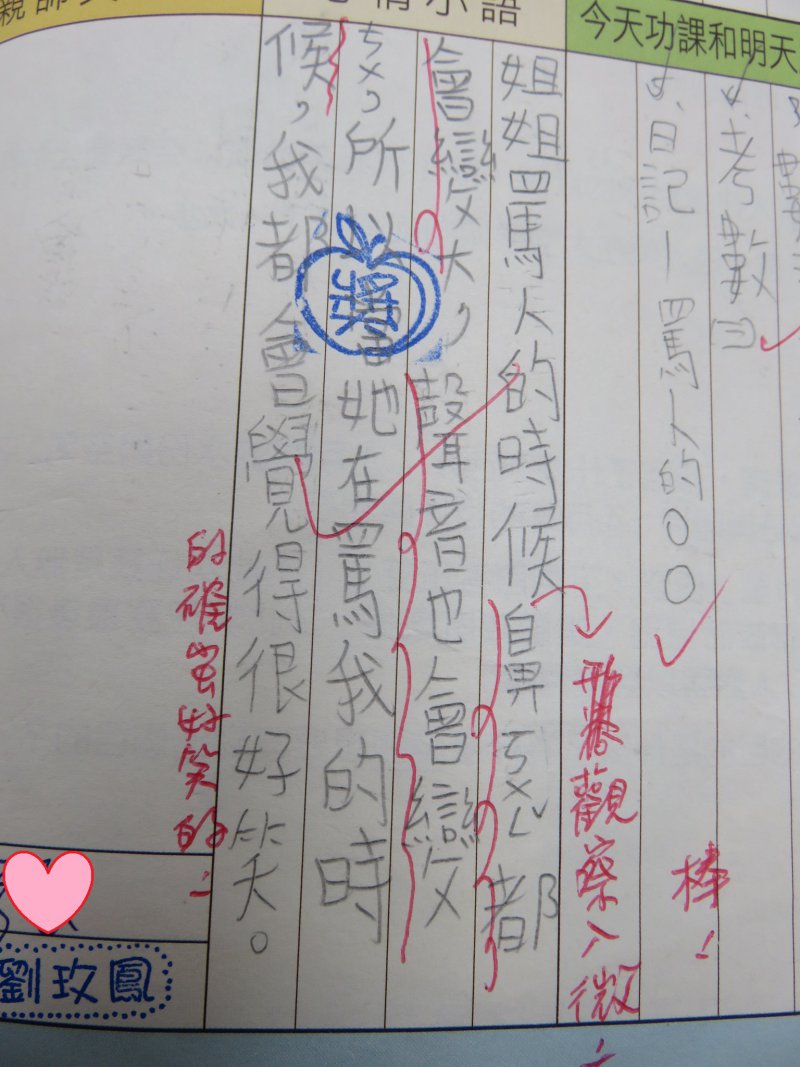 今天功課和明天
小語
親師
考數(三)
日記—罵人的○○
棒!
觀察入微!
姐姐罵人的時候鼻ㄎㄨㄥˇ都
會變大,聲音也會變
ㄘㄨ,所以當她在罵我的時
候,我都會覺得很好笑。
獎
的確蛮好笑的!
劉玫鳳